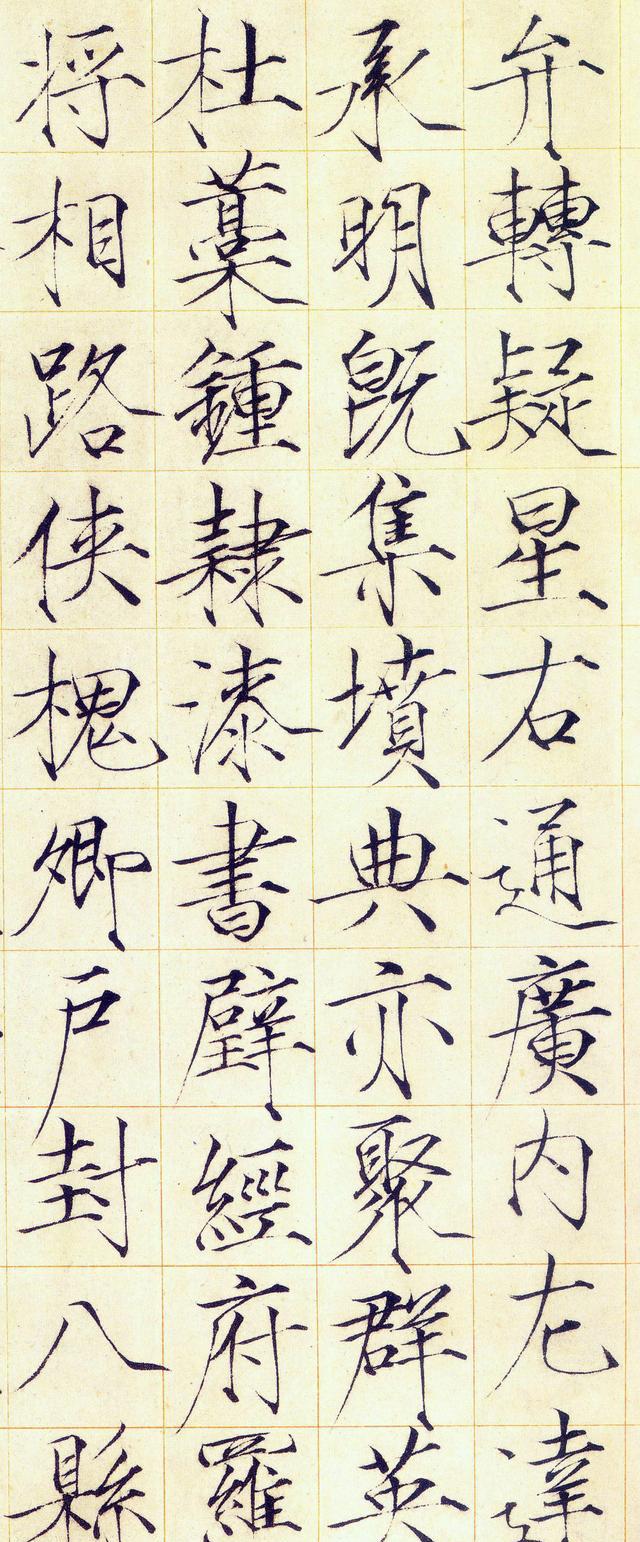 弁轉疑星右通廣内左達
承明既集墳典亦聚群英
杜藁鍾隸漆書壁經府羅
将相路侠槐卿戶封八縣